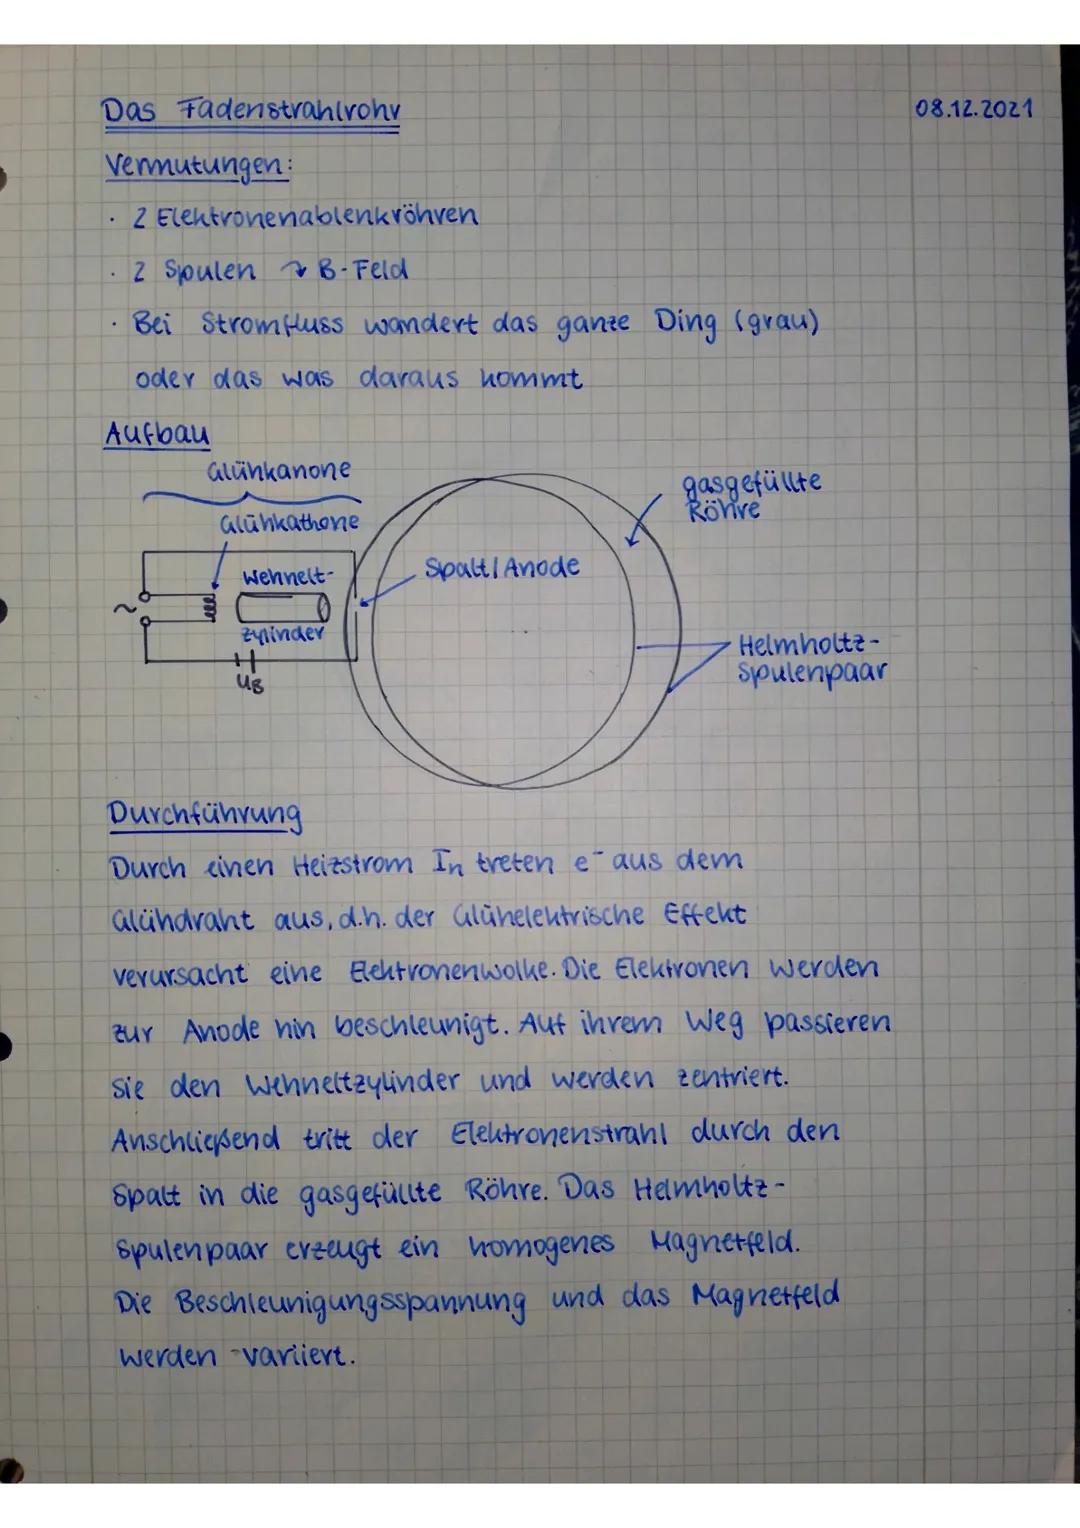 Das Fadenstrahlrohr
08.12.2021
Vermutungen:
· 2 Elektronenablenkröhren
· 2 Spulen ↝ B-Feld
· Bei Stromfluss wandert das ganze Ding (grau)
oder das was daraus kommt
Aufbau
Glühkanone
Glühkathone
Wehnelt-
zylinder
~
UB
Spalt/Anode
gasgefüllte
Röhre
Helmholtz-
Spulenpaar
Durchführung
Durch einen Heizstrom In treten e⁻ aus dem
Glühdraht aus, d.h. der Glühelektrische Effekt
verursacht eine Elektronenwolke. Die Elektronen werden
zur Anode hin beschleunigt. Auf ihrem Weg passieren
sie den Wehneltzylinder und werden zentriert.
Anschließend tritt der Elektronenstrahl durch den
Spalt in die gasgefüllte Röhre. Das Helmholtz-
Spulenpaar erzeugt ein homogenes Magnetfeld.
Die Beschleunigungsspannung und das Magnetfeld
werden variiert.